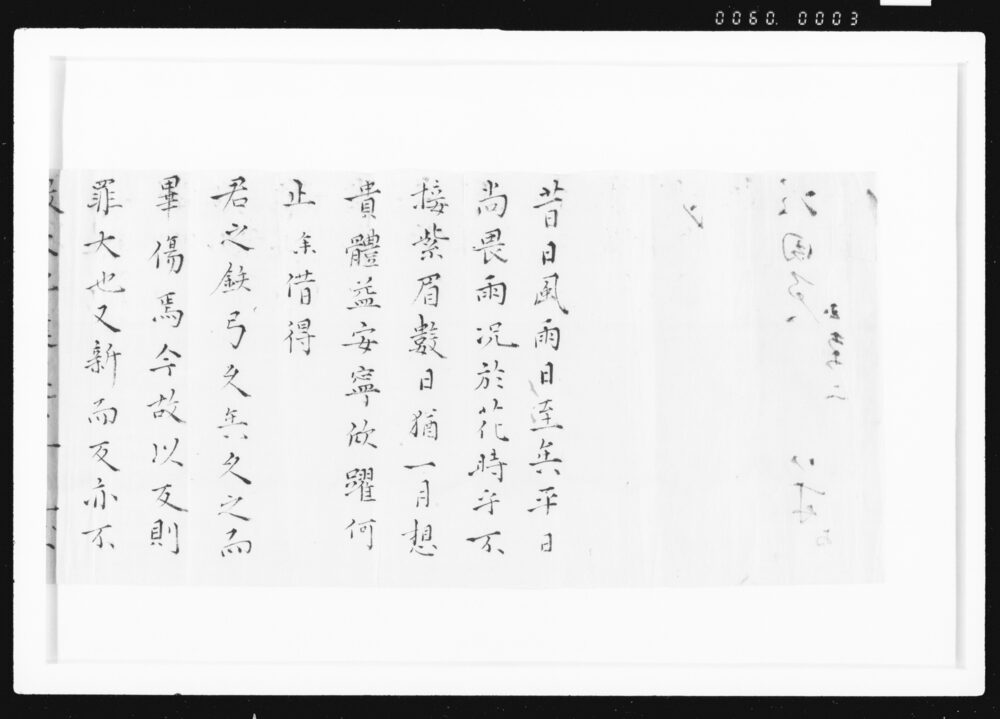 0060. 0003
昔日風雨日至矣平日
尚畏雨況於花時乎不
接紫眉數日猶一月想
貴體益安寧欣躍何
止余借得
君之鉄弓久矣久之而
畢傷焉今故以反則
罪大也又新而反亦不